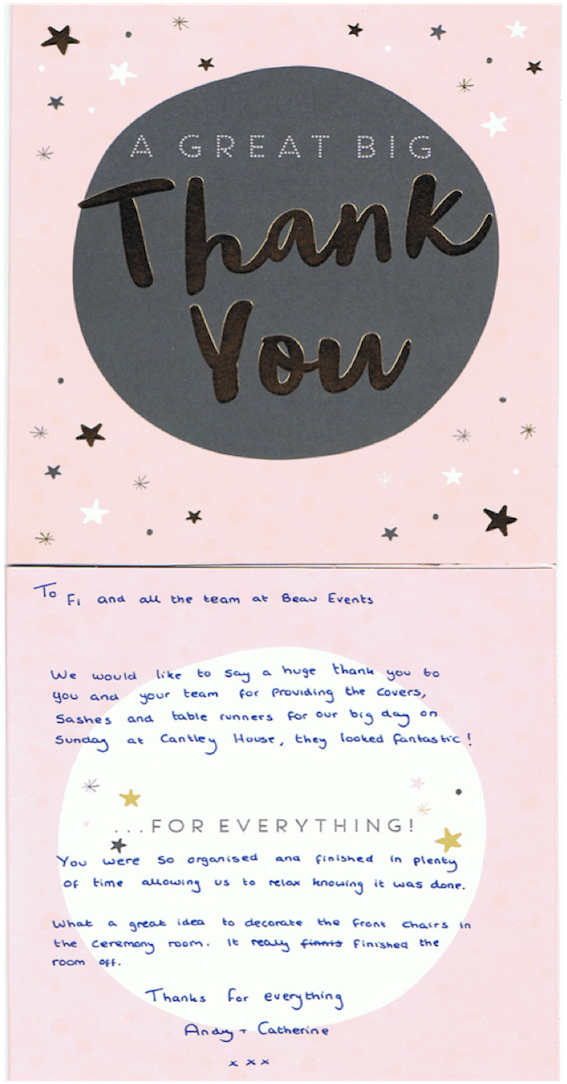 A GREAT BIG
Thank
You
To Fi and all the team at Beau Events
We would like to say a huge thank you to
you and your team for providing the covers,
sashes and table runners for our big day on
Sunday at Cantley House, they looked fantastic!
...FOR EVERYTHING!
You were so organised and finished in plenty
of time allowing us to relax knowing it was done.
What a great idea to decorate the front chairs in
the ceremony room. It really finnis finished the
room off.
Thanks for everything
Andy + Catherine
x x x